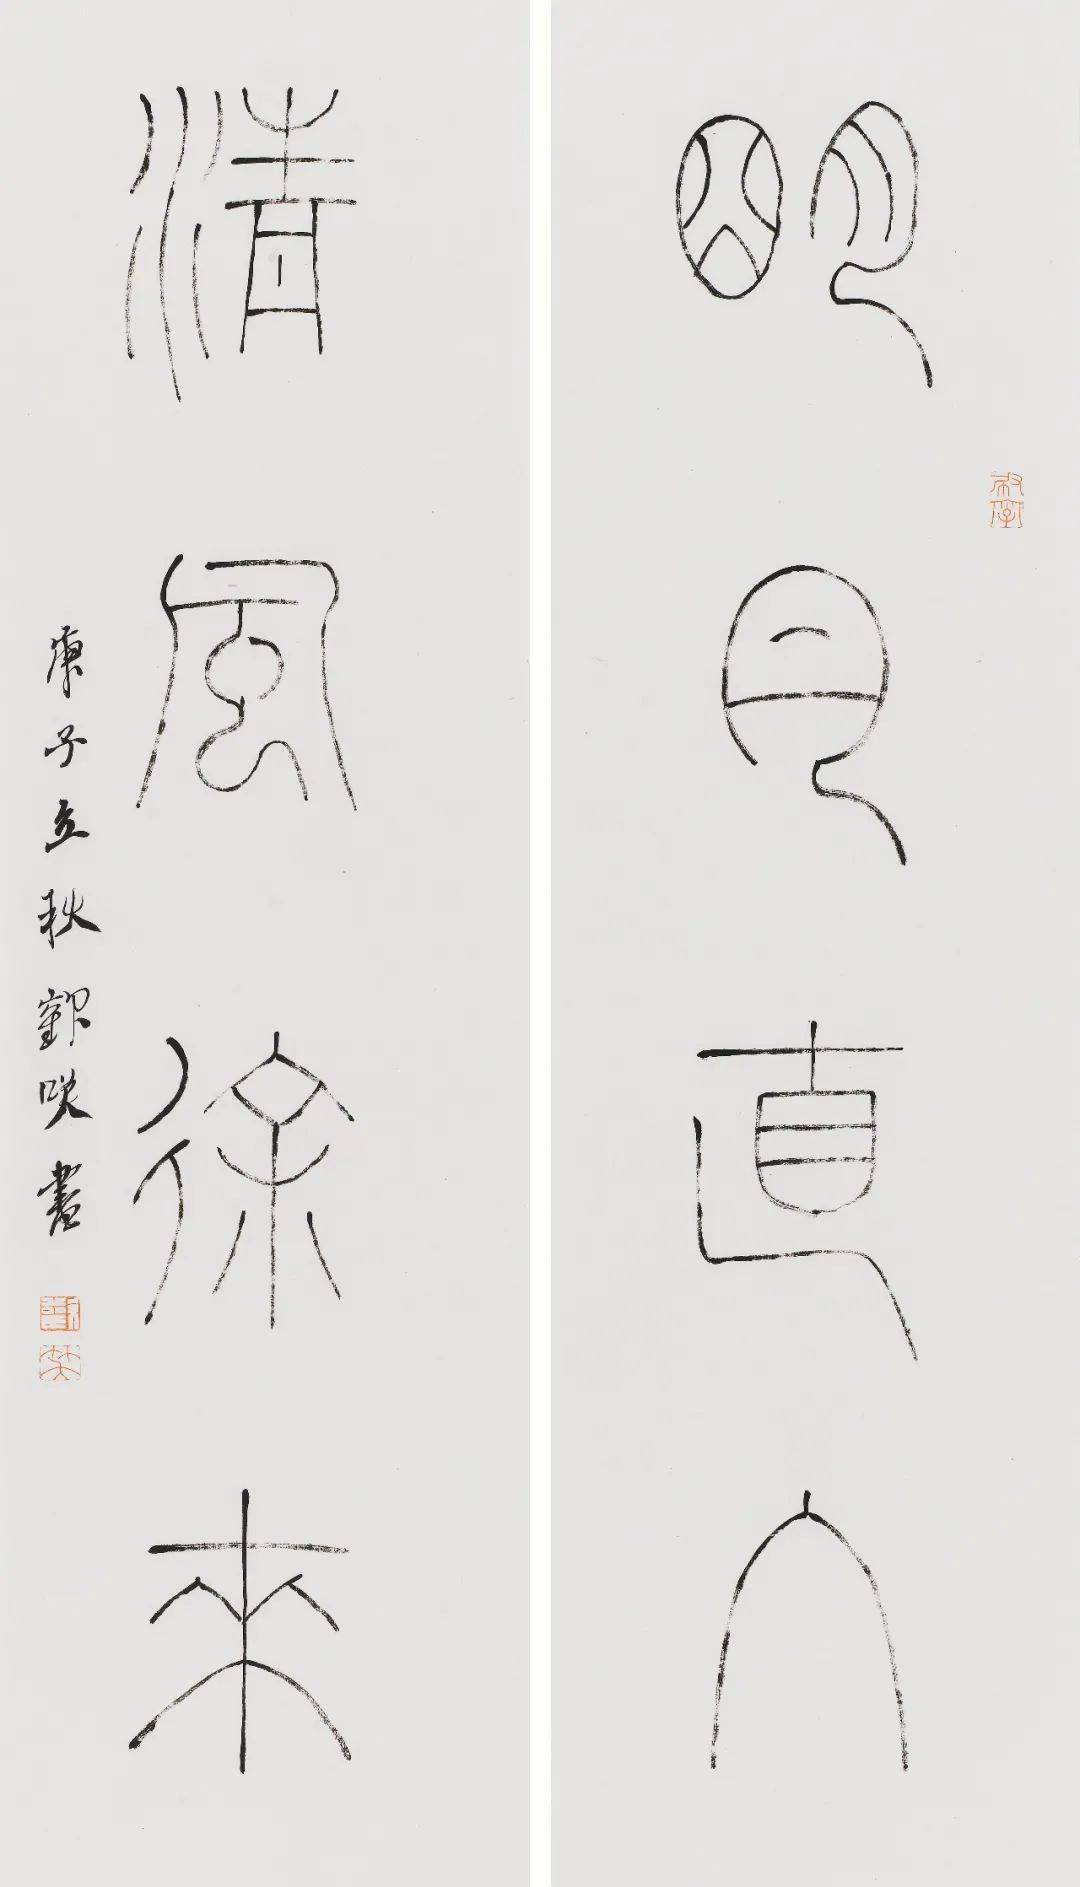 明月直入
清風徐來
庚子立秋 咲書